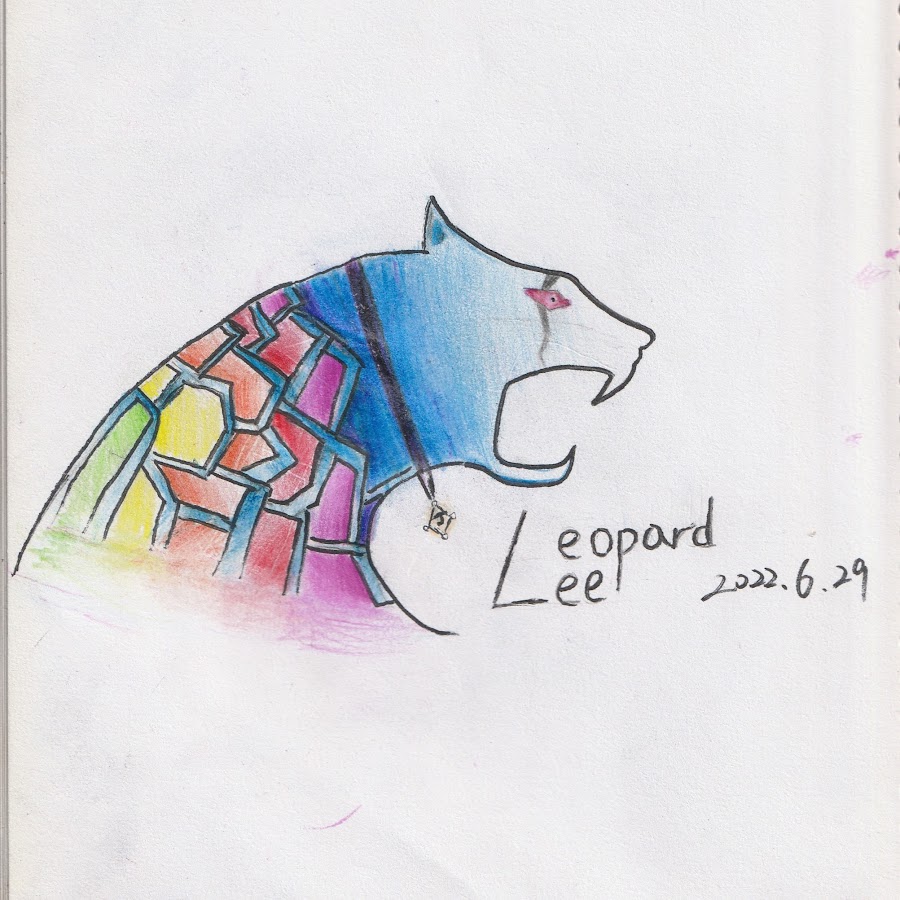 Leopard
Lee
2022.6.29